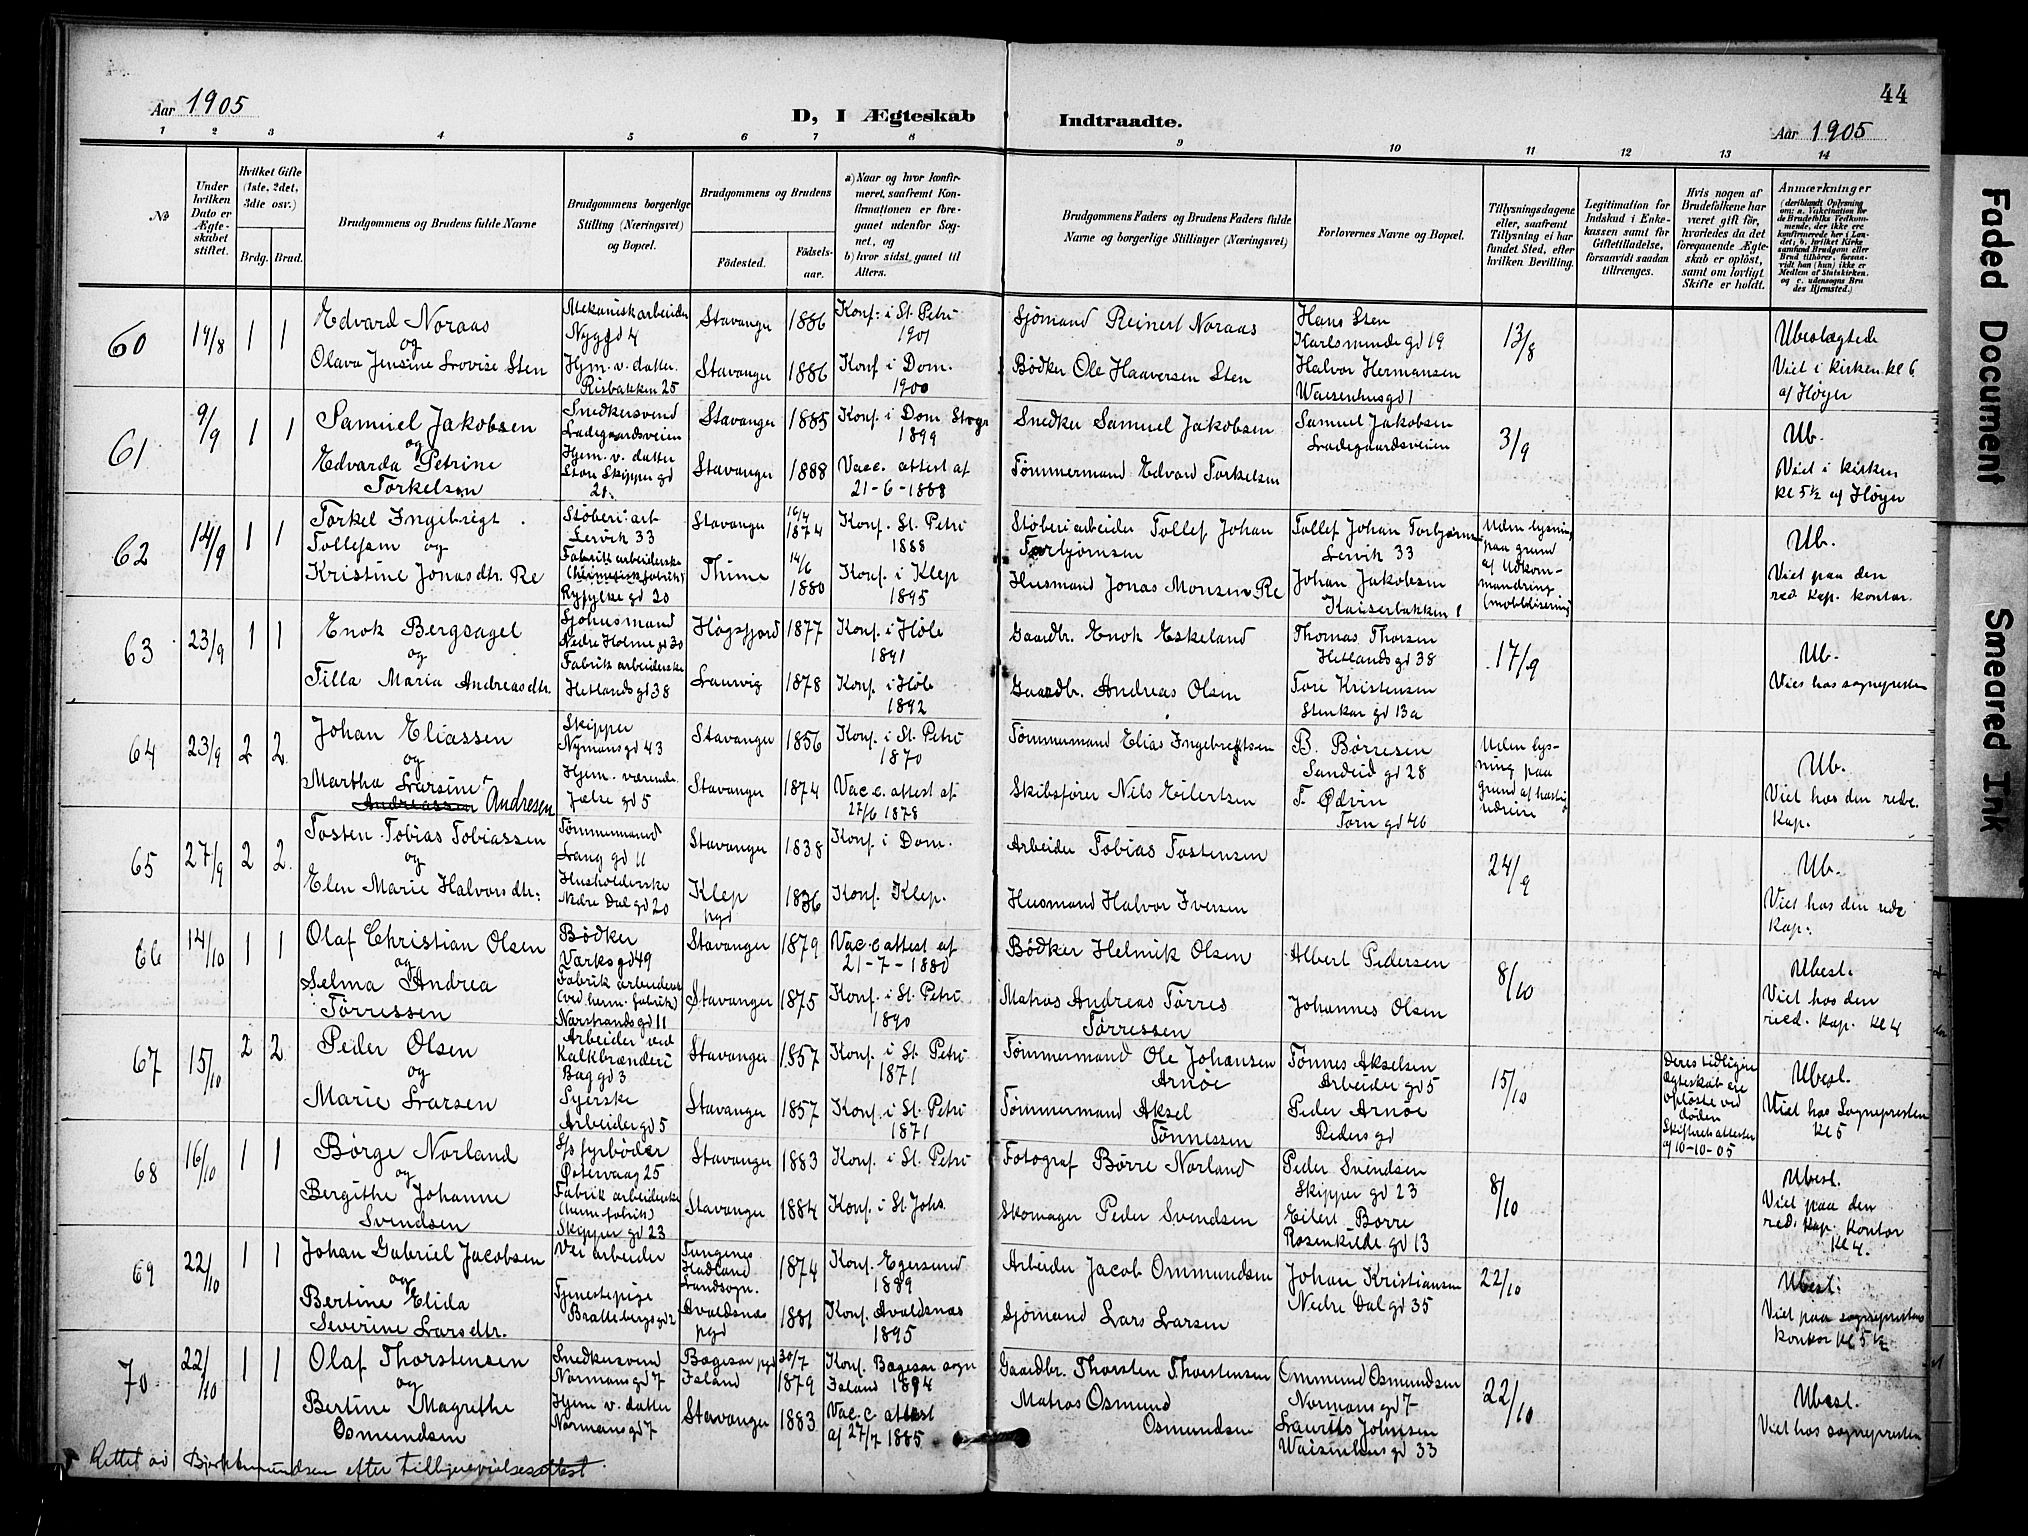 44
Aar 1905
D, I Ægteskab Indtraadte.
Aar 1905
1 2 3 4 5 6 7 8 9 10 11 12 13 14
No
Under hvilken Dato er Ægteskabet stiftet.
Hvilket Gifte (1ste, 2det, 3die osv.)
Brdg. Brud.
Brudgommens og Brudens fulde Navne
Brudgommens borgerlige Stilling (Næringsvei) og Bopæl.
Brudgommens og Brudens
Fødested. Fødselsaar.
a) Naar og hvor konfirmeret, saafremt Konfirmationen er foregaaet udenfor Sognet, og
b) hvor sidst gaaet til Alters.
Brudgommens Faders og Brudens Faders fulde Navne og borgerlige Stillinger (Næringsvei)
Forlovernes Navne og Bopæl.
Tillysningsdagene eller, saafremt Tillysning ei har fundet Sted, efter hvilken Bevilling.
Legitimation for Indskud i Enkekassen samt for Giftetilladelse, forsaavidt saadan tiltrænges.
Hvis nogen af Brudefolkene har været gift før, hvorledes da det foregaaende Ægteskab er opløst, samt om lovligt Skifte er holdt.
Anmærkninger (deriblandt Oplysning om: a. Vakcination for de Brudefolks Vedkommende, der ikke ere konfirmerede her i Landet; b. hvilket Kirkesamfund Brudgom eller Brud tilhører, forsaavidt han (hun) ikke er Medlem af Statskirken, og c. udensogns Brudes Hjemsted.)
60 14/8 1 1
Edvard Noraas
og
Olava Jensine Lovise Sten
Mekanisk arbeider
Nyggd 4
Hjm. v. datter.
Risbakken 25
Stavanger 1886
Stavanger 1886
Konf: i St. Petri
1901
Konf i Dom.
1900
Sjømand Reinert Noraas
Bødker Ole Haaversen Sten
Hans Sten
Karlsminde gd 19
Halvor Hermansen
Waisenhusgd 1
13/8
Ubeslægtede
Viet i kirken kl 6
af Høyer
61 9/9 1 1
Samuel Jakobsen
og
Edvarda Petrine
Torkelsen
Snedkersvend
Ladegaardsveien
Hjem. v. datter
Store Skipper gd
21.
Stavanger 1885
Stavanger 1888
Konf. i Dom Stvgr
1899
Vac. attest af
21-6-1888
Snedker Samuel Jakobsen
Tømmermand Edvard Torkelsen
Samuel Jakobsen
Ladegaardsveien
3/9
Ub.
Viet i kirken
kl 5½ af Høyer
62 14/9 1 1
Torkel Ingebrigt
Tollefsen og
Kristine Jonasdtr. Re
Støberi:arb
Lervik 33
Fabrikk arbeiderske
(hermetisk fabrik)
Ryfylke gd 20
Stavanger 16/4 1874
Thime 14/6 1880
Konf. St. Petri
1888
Konf. i Klep
1895
Støberiarbeider Tollef Johan
Torbjørnsen
Husmand Jonas Monsen Re
Tollef Johan Torbjørnsen
Lervik 33
Johan Jakobsen
Kaiserbakken 1
Uden lysning
paa grund
af Udkom-
mandring
(mobilisering)
Ub.
Viet paa den
red. Kap. kontor.
63 23/9 1 1
Enok Bergsagel
og
Tilla Maria Andreasdtr.
Sjøhusmand
Nedre Holme gd 30
Fabrik arbeiderske
Hetlandsgd 38
Høgsfjord 1877
Laurvig 1878
Konf. i Høle
1891
Konf. i Høle
1892
Gaardbr. Enok Eskeland
Gaardb. Andreas Olsen
Thomas Thorsen
Hetlands gd 38
Tore Kristensen
Stenkar gd 13a
17/9
Ub.
Viet hos sognepresten
64 23/9 2 2
Johan Eliassen
og
Martha Larsine
Andreassen Andresen
Skipper
Nymansgd 43
Hjem. værende
Jelse gd 5
Stavanger 1856
Stavanger 1874
Konf. i St. Petri
1870
Vac. attest af
27/6 1878
Tømmermand Elias Ingebretsen
Skibsfører Nils Eilertsen
B. Børresen
Sandeid gd 28
T. Ødvin
Torn gd 46
Uden lys-
ning paa
grund af hastig
udreise
Ub.
Viet hos den redc.
Kap.
65 27/9 2 2
Tosten Tobias Tobiassen
og
Elen Marie Halvorsdtr:
Tømmermand
Lang gd 11
Husholderske
Nedre Dal gd 20
Stavanger 1838
Klep pgd 1836
Konf. i Dom.
Konf. Klep.
Arbeider Tobias Tostensen
Husmand Halvor Iversen
24/9
Ub.
Viet hos den rede
Kap.
66 14/10 1 1
Olaf Christian Olsen
og
Selma Andrea
Tørressen
Bødker
Værksgd 49
Fabrik arbeiderske
(ved herm. fabrik)
Narstrandsgd 11
Stavanger 1879
Stavanger 1875
Vac. attest af
21-7-1880
Konf. i St. Petri
1890
Bødker Helmik Olsen
Matros Andreas Tørres
Tørressen
Albert Pedersen
Johannes Olsen
8/10
Ubesl.
Viet hos den
red. Kap. kl 4
67 15/10 2 2
Peder Olsen
og
Marie Larsen
Arbeider ved
Kalkbrænderi
Bag gd 3
Syerske
Arbeidergd 5
Stavanger 1857
Stavanger 1857
Konf. i St. Petri
1871
Konf. i St. Petri
1871
Tømmermand Ole Johansen
Arnøe
Tømmermand Aksel
Tønnessen
Tønnes Akselsen
Arbeider gd 5
Peder Arnøe
Peders gd
15/10
Deres tidligere
Ægteskab ere
opløste ved
døden
Skifterets attester
af 10-10-05
Ubesl.
Viet hos Sognepresten
kl 5
68 16/10 1 1
Børge Norland
og
Bergithe Johanne
Svendsen
S/s fyrbøder
Østervaag 25
Fabrik arbeiderske
(herm. fabrik)
Skipper gd 23
Stavanger 1883
Stavanger 1884
Konf. i St. Petri
Konf. i St. Johs.
Fotograf Børre Norland
Skomager Peder Svendsen
Peder Svendsen
Skipper gd 23
Eilert Børre
Rosenkilde gd 13
8/10
Ubesl.
Viet paa den
red. Kap. Kontor
kl 4.
69 22/10 1 1
Johan Gabriel Jacobsen
og
Bertine Elida
Severine Larsdtr.
Vei arbeider
Tjenestepige
Brattebergsgd 2
Tungenes
Hadland
Landsogn. 1874
Avaldsnæs
pgd 1881
Konf. Egersund
1889
Konf. Avaldsnæs
1895
Arbeider Jacob Ommundsen
Sjømand Lars Larsen
Johan Kristiansen
Nedre Dal gd 35
22/10
Ubesl:
Viet paa sognepresten
kontor kl 5½
70 22/10 1 1
Olaf Thorstensen
og
Bertine Magrethe
Osmundsen
Snedkersvend
Normansgd 7
Hjem v. datter
Normansgd 7
Bægisar pgd
Island 30/7 1879
Stavanger 1883
Konf. Bægisar sogn
Island 1894
Vac. attest
af 27/7 1885
Gaardbr. Thorsten Thorstensen
Matros Osmund
Osmundsen
Ommund Osmundsen
Normansgd 7
Laurits Johnsen
Waisenhusgd 33
22/10
Ubesl.
Viet hos sognepresten
Rettet av efter
Faded Document
Smeared Ink